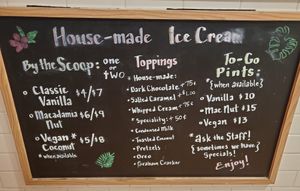 House-made Ice Cream
By the Scoop: one or two
Classic Vanilla $4/$7
Macadamia Nut $6/$9
Vegan * Coconut $5/$8
* when available
Toppings
House-made:
Dark Chocolate +75¢
Salted Caramel +$1.00
Whipped Cream +75¢
Speciality: +50¢
Condensed Milk
Toasted Coconut
Pretzels
Oreo
Graham Cracker
To-Go Pints:
*{when available}
Vanilla $10
Mac Nut $15
Vegan $13
*Ask the Staff!
{sometimes we have
Specials!}
Enjoy!